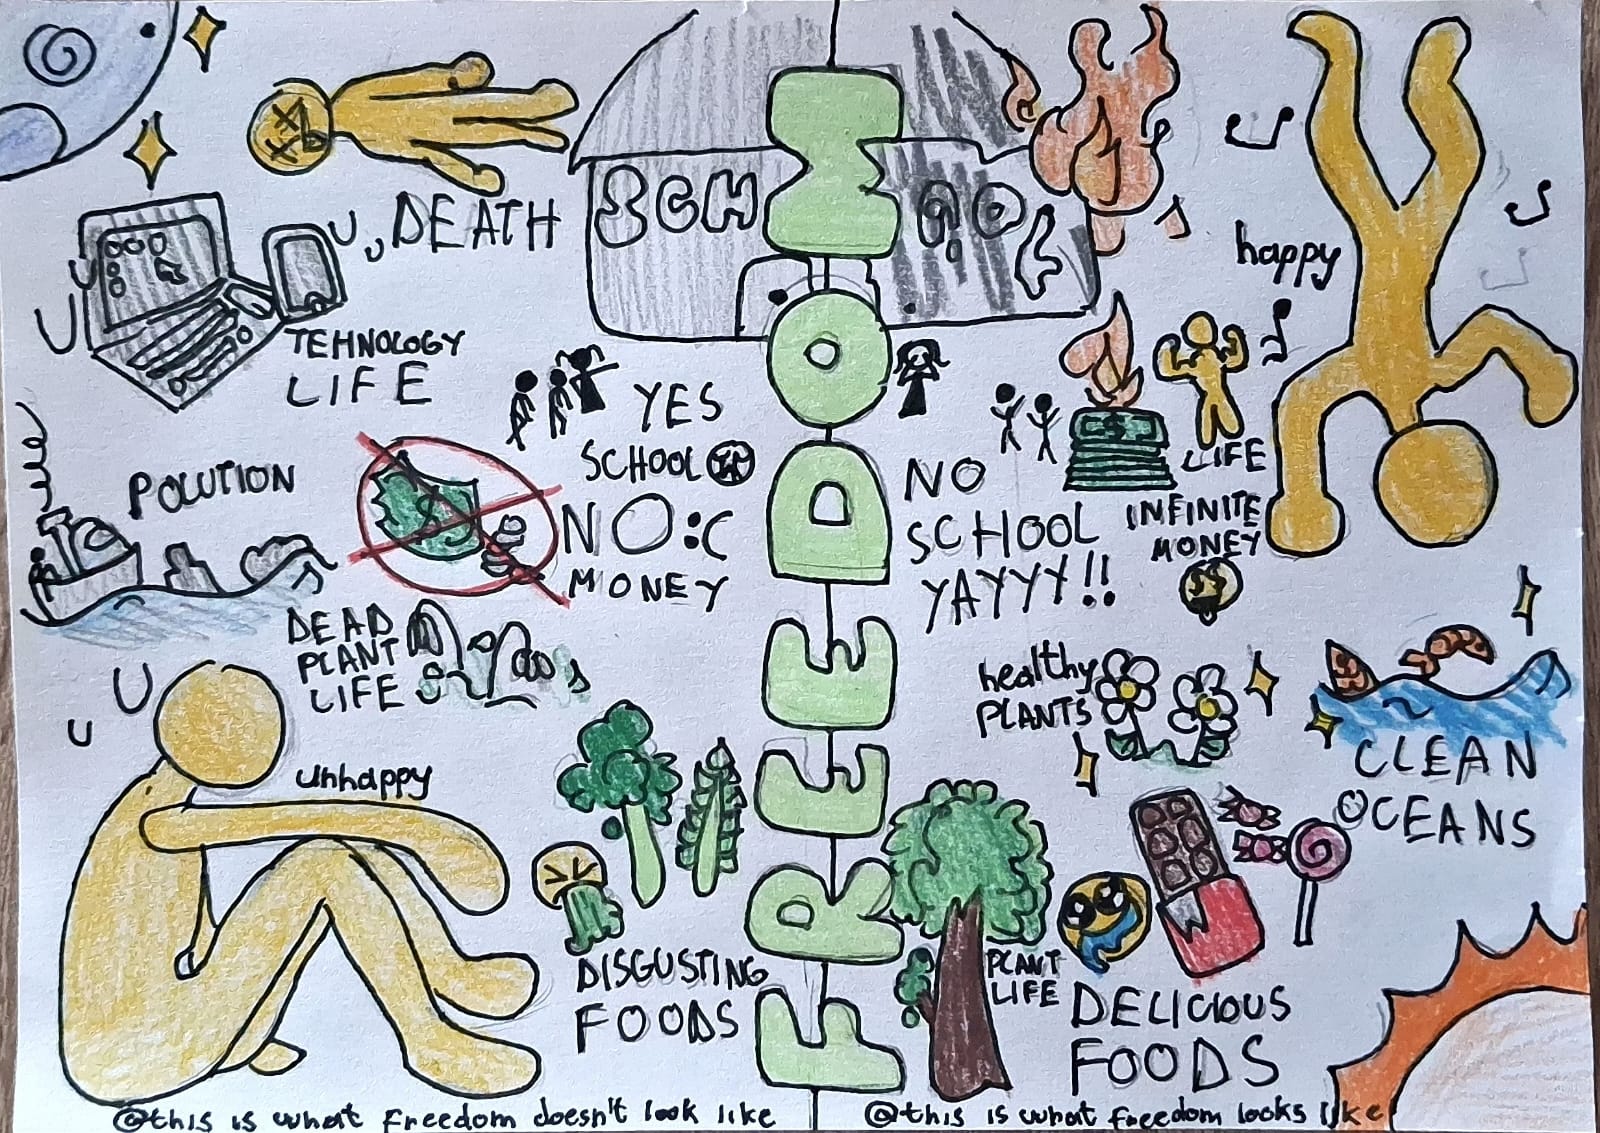 DEATH
SCHOOL
TEHNOLOGY
LIFE
happy
YES
SCHOOL
NO :C
MONEY
POLUTION
DEAD
PLANT
LIFE
unhappy
DISGUSTING
FOODS
FREEDOM
NO
SCHOOL
YAYYY!!
LIFE
INFINITE
MONEY
healthy
PLANTS
CLEAN
OCEANS
PLANT
LIFE
DELICIOUS
FOODS
@this is what freedom doesn't look like
@this is what freedom looks like